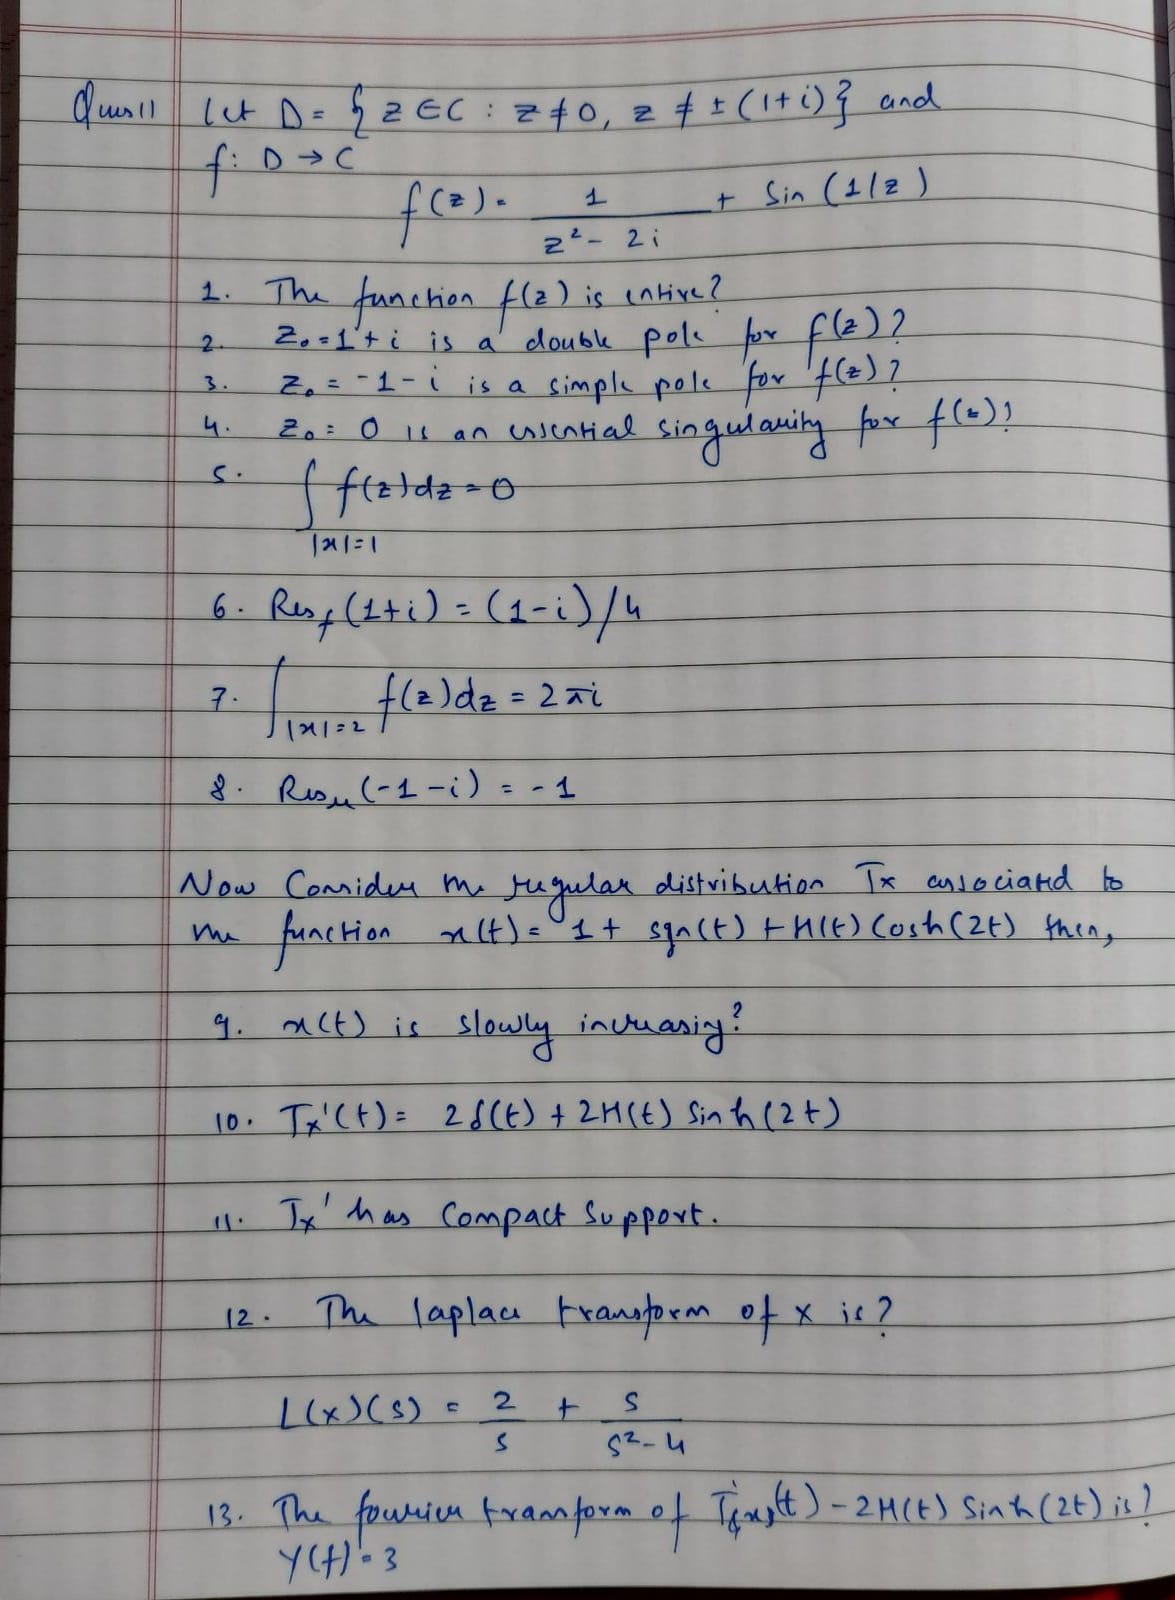 Ques 11 Let D = { z ∈ C : z ≠ 0, z ≠ ± (1+i) } and
f: D → C
f(z) = 1 / (z² - 2i) + Sin (1/z)
1. The function f(z) is entire?
2. z₀ = 1 + i is a double pole for f(z)?
3. z₀ = -1 - i is a simple pole for f(z)?
4. z₀ = 0 is an essential singularity for f(z)?
5. ∫_{|x|=1} f(z)dz = 0
6. Res_f (1+i) = (1-i)/4
7. ∫_{|x|=2} f(z)dz = 2πi
8. Res_u (-1-i) = -1
Now Consider the regular distribution Tx associated to
the function x(t) = 1 + sgn(t) + H(t) Cosh(2t) then,
9. x(t) is slowly increasing?
10. Tx'(t) = 2δ(t) + 2H(t) Sinh(2t)
11. Tx' has Compact Support.
12. The laplace transform of x is?
L(x)(s) = 2/s + s/(s²-4)
13. The fourier transform of (t) - 2H(t) Sinh(2t) is?
Y(f) = 3